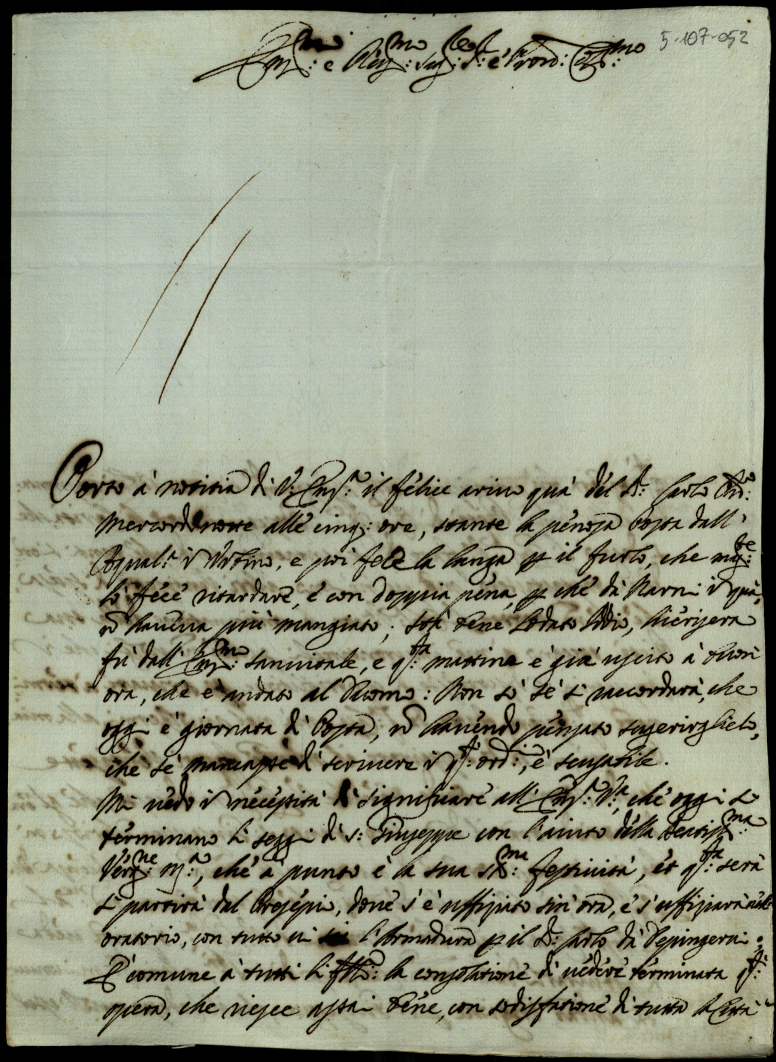 5-107-052
Em.mo e Rev.mo Sig.r S.r e Pron: Col.mo
Porto à notitia di V: Em.a il felice arivo quà del S.r Carlo
Mercordi notte alle cinq: ore, stante la penosa Posta dall'
Aqual.a à Urbino, e poi fece la lunga p il furlo, che
lo fece ritardare, e con doppia pena, p che dà Narni i quà,
ñ haveva più mangiato; stà bene Lodato Iddio, hierisera
fù dall' Em.mo Sanvitale, e q.ta mattina è già uscito à buon
ora, che è andato al Duomo: Non sò se si raccordarà, che
oggi è giornata di Posta, ñ havendo pensato sugerirglielo,
che se mancasse di scrivere i q.to ord:, è scusabile.
Mi vedo i necessità di significare all' Em.a V.a, che oggi si
terminano li seggi di S: Giuseppe con l'aiuto della Beatiss.ma
Verg.ne M.a, che à punto è la sua S.ma festività, et q.ta serà
si partirà dal Presepio, dove s'è uffiziato sin'ora, e s'uffiziarà nell'
oratorio, con tutto vi sij l'Armadura p il S.r Carlo dà depingervi:
È comune à tutti li fr.lli la consolatione di vedere terminata q.ta
opera, che riesce assai bene, con sodisfatione di tutta la Città